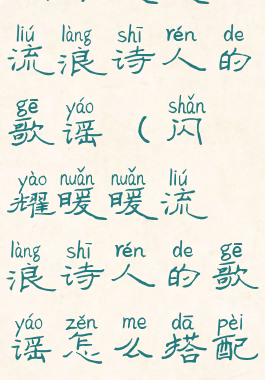 liú làng shī rén de
流浪诗人的
gē yáo shǎn
歌谣（闪
yào nuǎn nuǎn liú
耀暖暖流
làng shī rén de gē
浪诗人的歌
yáo zěn me dā pèi
谣怎么搭配